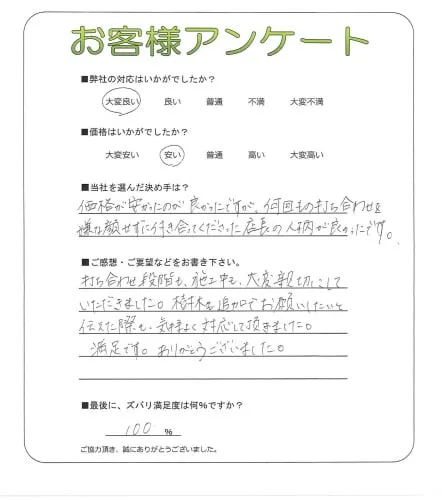 お客様アンケート
■弊社の対応はいかがでしたか？
大変良い 良い 普通 不満 大変不満
■価格はいかがでしたか？
大変安い 安い 普通 高い 大変高い
■当社を選んだ決め手は？
価格が安かったのが良かったですが、何回もの打ち合わせを
嫌な顔せずに付き合ってくださった店長の人柄が良かったです。
■ご感想・ご要望などをお書き下さい。
打ち合わせ段階も、施工中も、大変親切にして
いただきました。樹木も追加でお願いしたいと
伝えた際も、気持よく対応して頂きました。
満足です。ありがとうございました。
■最後に、ズバリ満足度は何%ですか？
100 %
ご協力頂き、誠にありがとうございました。